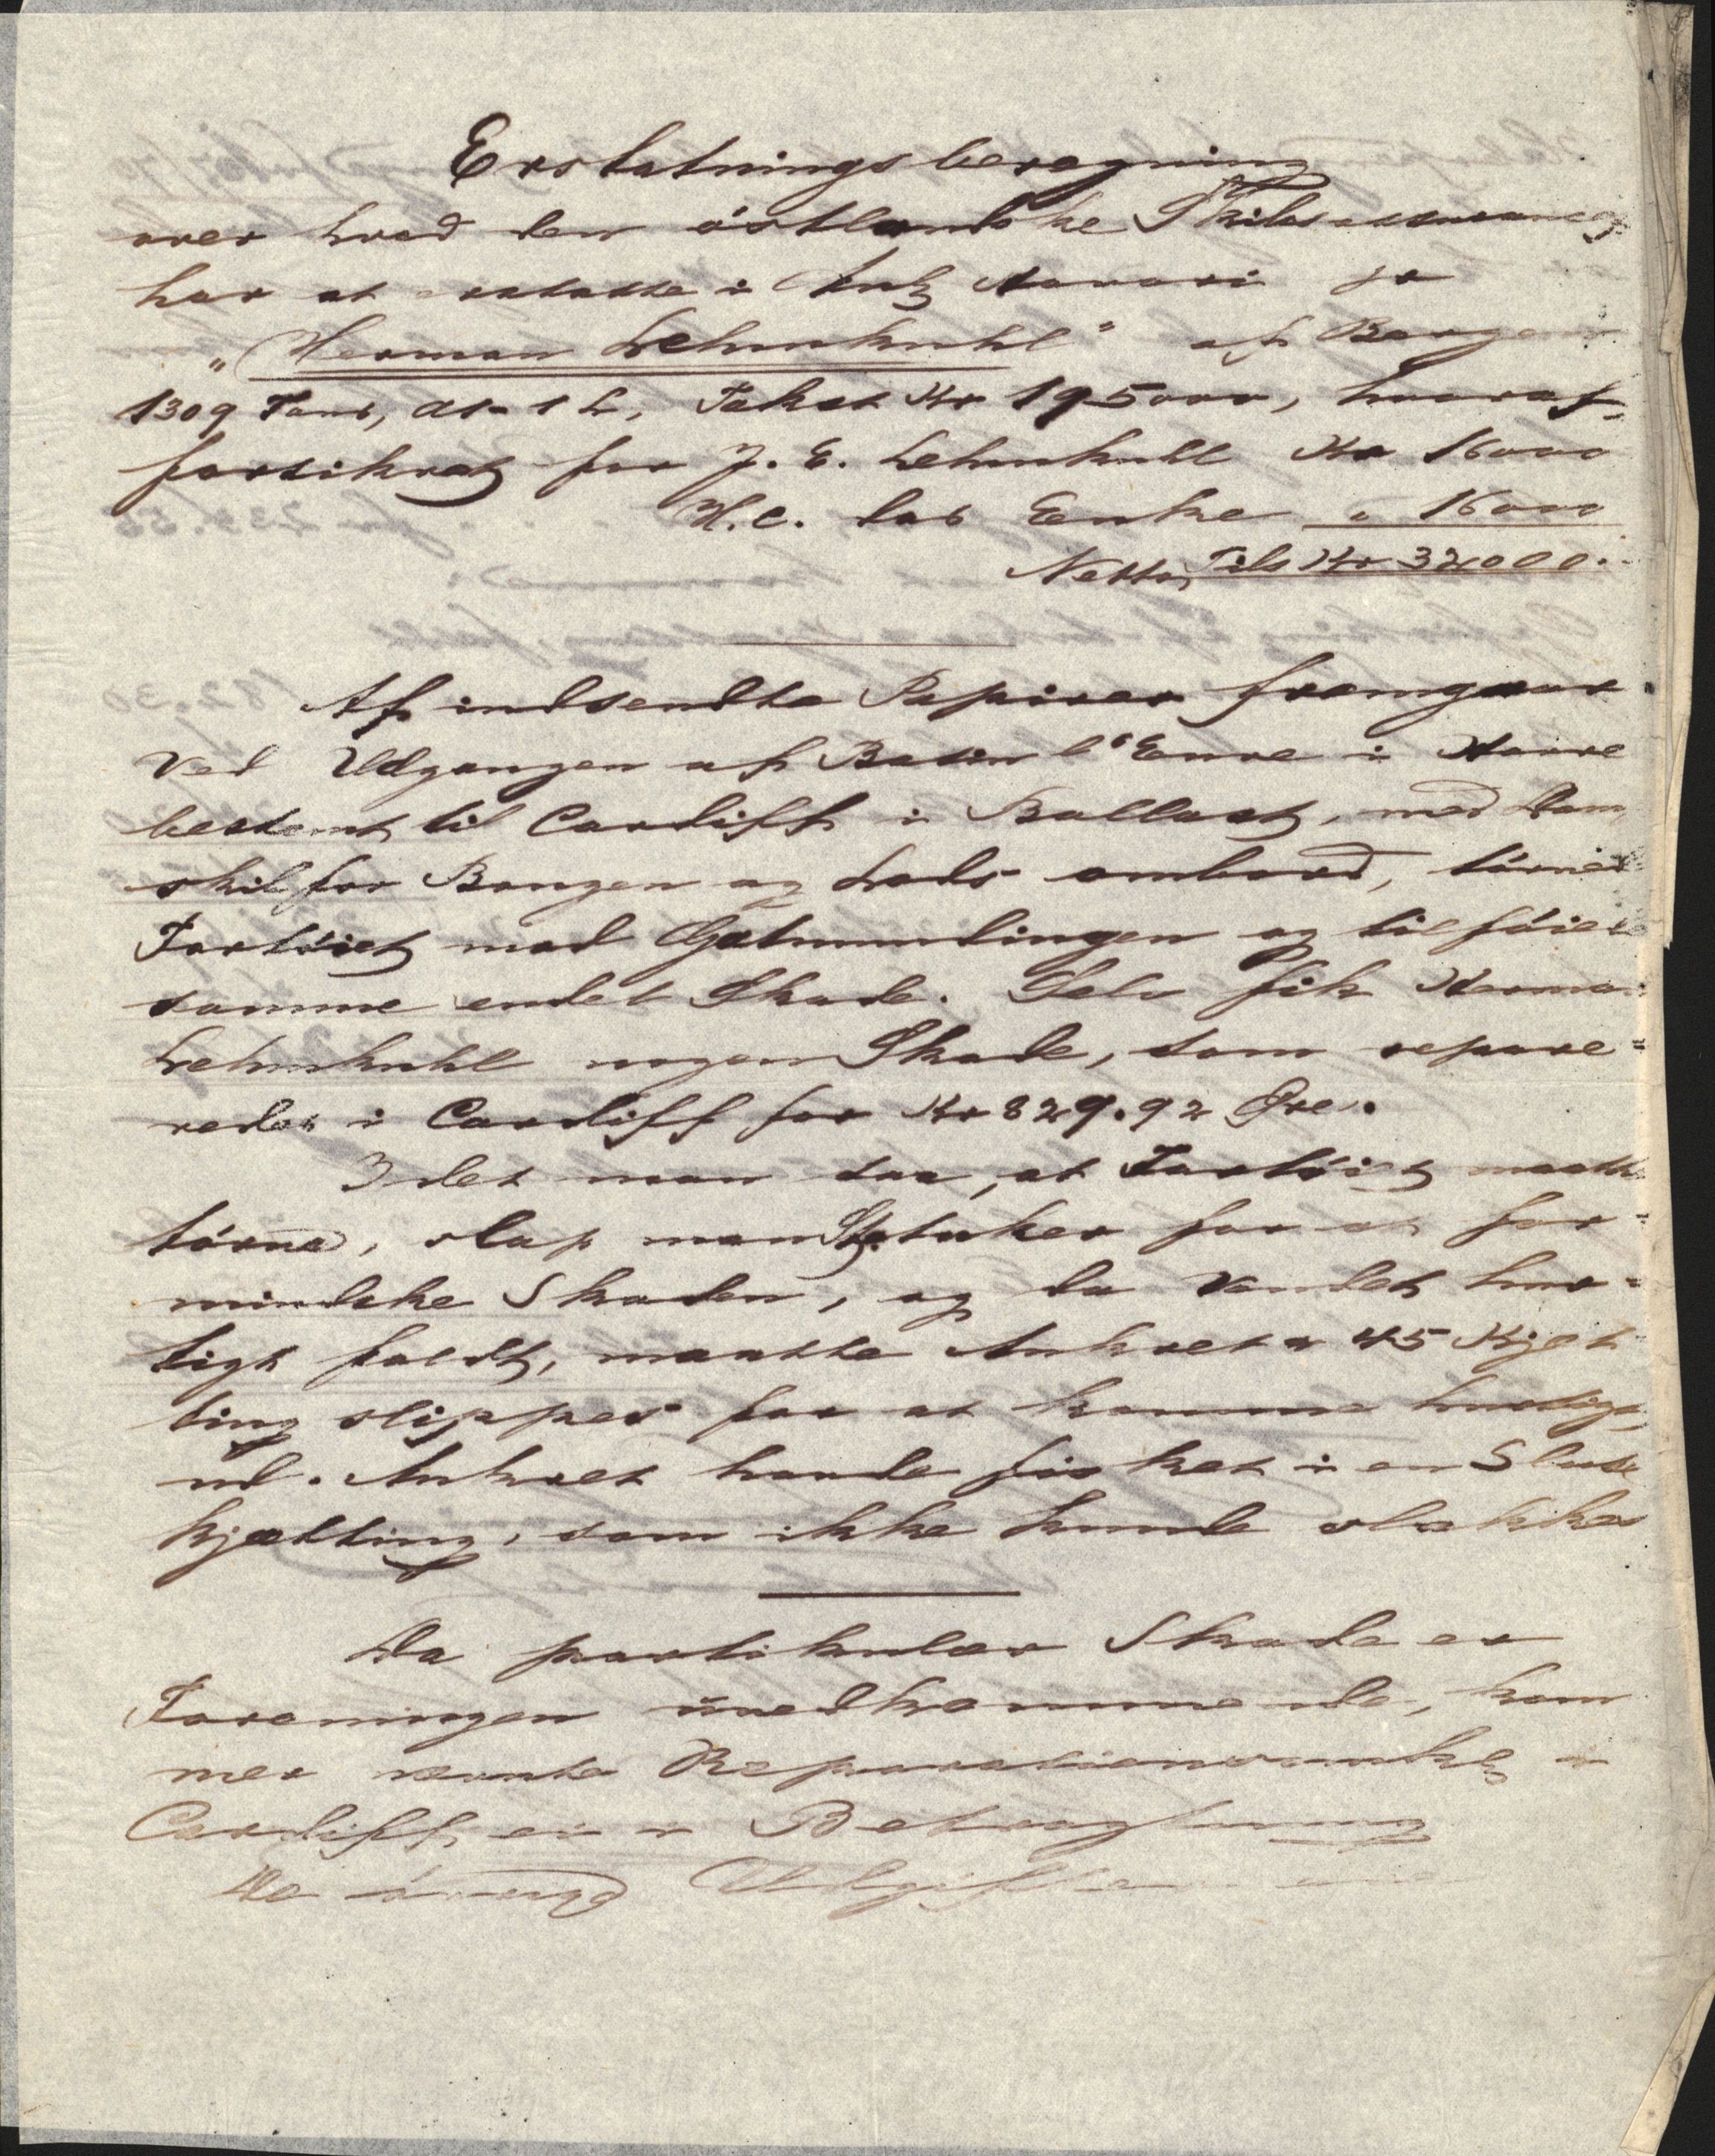 Erstatningsberegning
over hvad den östlandske Skibsassurance
har at erstatte i Anl Havari pr
"Herman Lehmkuhl" af Bergen
1309 Tons, A1-1 L, Takst Kr 195000, hvoraf
forsikret for J. E. Lehmkuhl Kr 16000
H. C. Enke " 16000
Netto, Tils Kr 32,000.
Af indsendte Papirer fremgaar
Ved Udgangen af Basin l'Eure i Havre
bestemt til Cardiff i Ballast, med Dam
skib for Bougen og Lods ombord, tórned
Fartóiet mod Gatmundingen og tilfóiede
samme endel Skade. Selv fik Herman
Lehmkuhl nogen Skade, som repare=
redes i Cardiff for Kr 829.92 Øre.
Idet man saa, at Fartóiet maatte
tórne, slap man Stb. anker for at for=
mindske Skaden, og da Vandet hur=
tigt faldt, maatte Ankret & 45 Kjet
ting slippes for at komme hurtigt
ud. Ankret havde fisket i en Sluse
kjætting, som ikke kunde slækkes
Da partikulær Skade er
Foreningen uvedkommende, kom
mer nævnte Reparation i
Cardiff, ei i Betragtning
De óvrige Udgifter